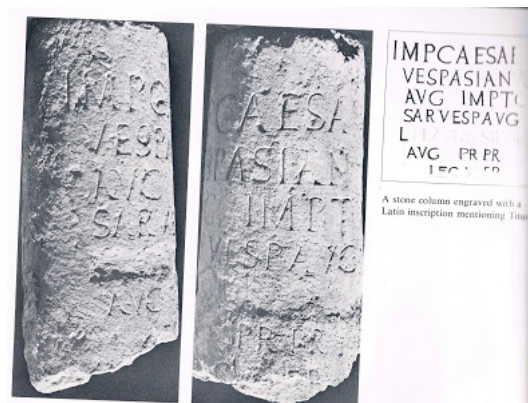 IMPC
VESP
AVG
SARV
AVG
CAESA
PASIAN
IMPT
VESPAVG
PRPR
IMPCAESAR
VESPASIAN
AVG IMPT
SARVESPAVG
L
AVG PRPR
A stone column engraved with a
Latin inscription mentioning Titus